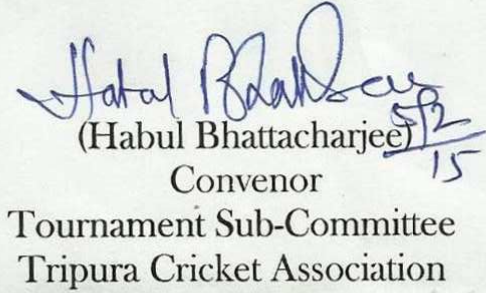 Habul Bhattacharjee
5/2
15
(Habul Bhattacharjee)
Convenor
Tournament Sub-Committee
Tripura Cricket Association